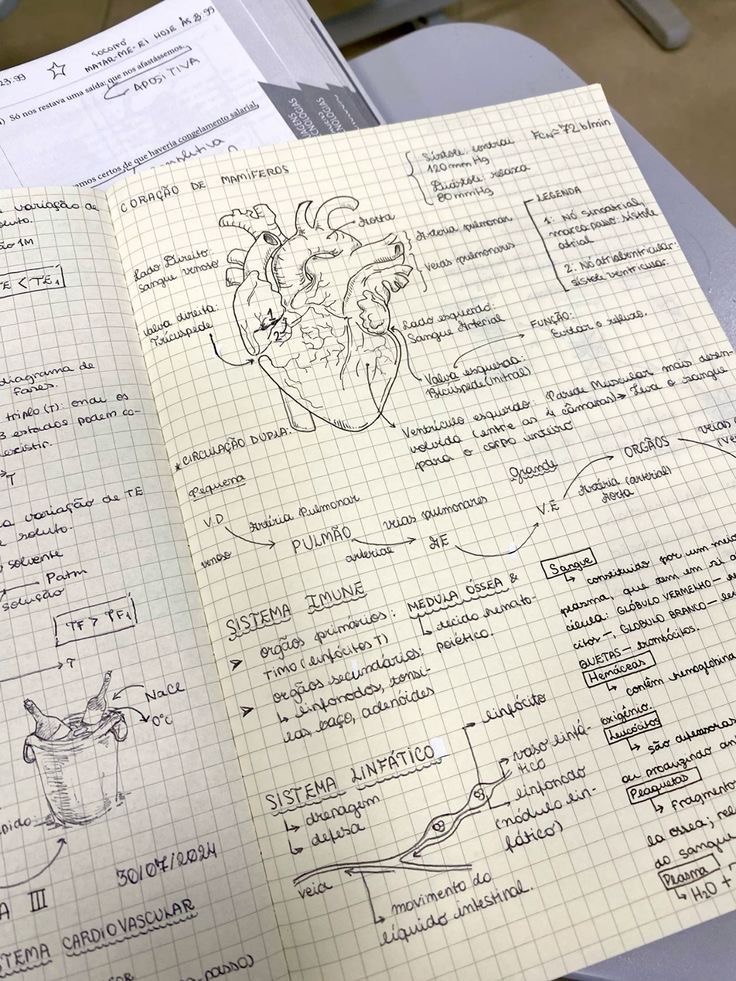 23:59
SOCORRO
MATAR-ME-EI HOJE ÀS 23:59
Só nos restava uma saída: que nos afastássemos.
APOSITIVA
amos certos de que haveria congelamento salarial.
variação de
1M
TE < TE₁
diagrama de
fases.
triplo (T): onde os
3 estados podem co-
existir.
→T
a variação de TE
soluto.
solvente
Patm
solução
TF > TF₁
→T
NaCl
0°C
pido
A III
30/07/2024
STEMA CARDIOVASCULAR
passo)
CORAÇÃO DE MAMÍFEROS
Sístole: contrai
120 mmHg
Diástole: relaxa
80 mmHg
FCN= 72 b/min
LEGENDA
1: Nó sinoatrial,
marca passo: sístole
atrial
2. Nó atrioventricular:
sístole ventricular
Aorta
Artéria pulmonar
Veias pulmonares
Lado Direito:
sangue venoso
Valva direita:
Tricúspede
1
2
Lado esquerdo:
Sangue Arterial
Valva esquerda:
Bicúspede (mitral)
FUNÇÃO:
Evitar o refluxo.
Ventrículo esquerdo: (Parede Muscular mais desen-
volvida (entre as 4 câmaras) → Leva o sangue
para o corpo inteiro
*CIRCULAÇÃO DUPLA:
Pequena
V.D
venoso
Artéria Pulmonar
PULMÃO
arterial
veias pulmonares
AE
Grande
V.E
Artéria (arterial)
Aorta
ORGÃOS
veias
(ve
SISTEMA IMUNE
➤ orgãos primários: MEDULA ÓSSEA &
TIMO (linfócitos T)
↳ tecido hemato-
poiético.
➤ orgãos secundários:
↳ linfonodos, tonsi-
las, baço, adenóides
SISTEMA LINFÁTICO
↳ drenagem
↳ defesa
linfócito
vaso linfá-
tico
linfonodo
(nódulo lin-
fático)
veia
movimento do
líquido intestinal.
Sangue
↳ constituído por um meio
plasma, que tem em si a
célula: GLÓBULO VERMELHO -
citos -, GLOBULO BRANCO -
QUETAS - trombócitos.
Hemáceas
↳ contém hemoglobina
oxigênio.
Leucócitos
↳ são defensoras
ou produzindo an
Plaquetas
↳ Fragmento
la ossea; rel
do sangue
Plasma
↳ H₂O +